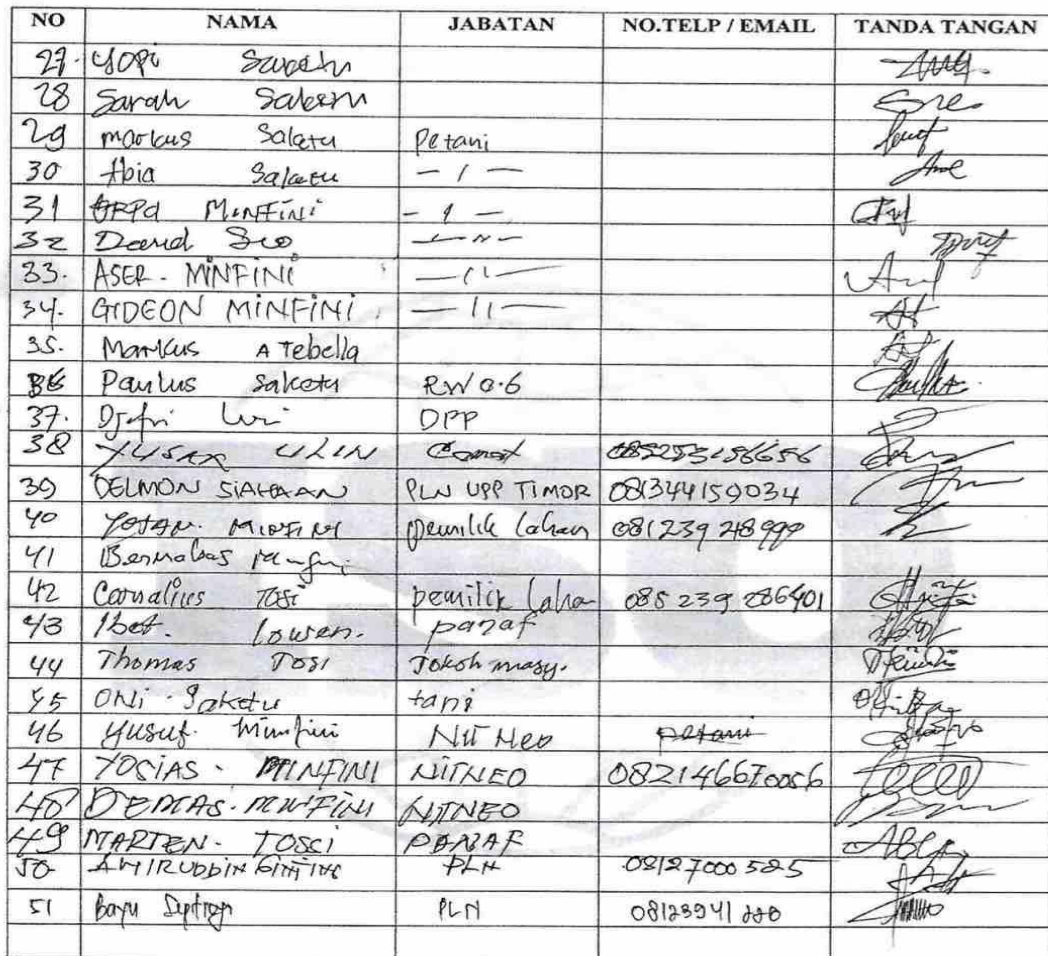 NO NAMA JABATAN NO.TELP / EMAIL TANDA TANGAN
27. Yopi
28 Sarah
29 Markus Saketu Petani
30 Abia Saketu — / —
31 Orpa Minfini — 1 —
32 David Seo — 11 —
33. ASER - MINFINI — 11 —
34. GIDEON MINFINI — 11 —
35. Markus A Tebella
36 Paulus Saketu RW 0.6
37. Djefri DPP
38 YUSAK ULIN Camat
39 DELMON SIAHAAN PLN UPP TIMOR 081344159034
40 MINFINI Pemilik lahan 081239248999
41
42 Cornalius Tosi pemilik lahan 085 239 286401
43 panaf
44 Thomas Tosi Tokoh masy.
45 ONi Saketu tani
46 Yusuf. Minfini Nit Neo petani
47 YOSIAS - MINFINI NITNEO 082146670056
48 DEMAS - MINFINI NITNEO
49 MARTEN - TOSSI PANAF
50 AMIRUDDIN GINTING PLN 08127000525
51 Bayu PLN